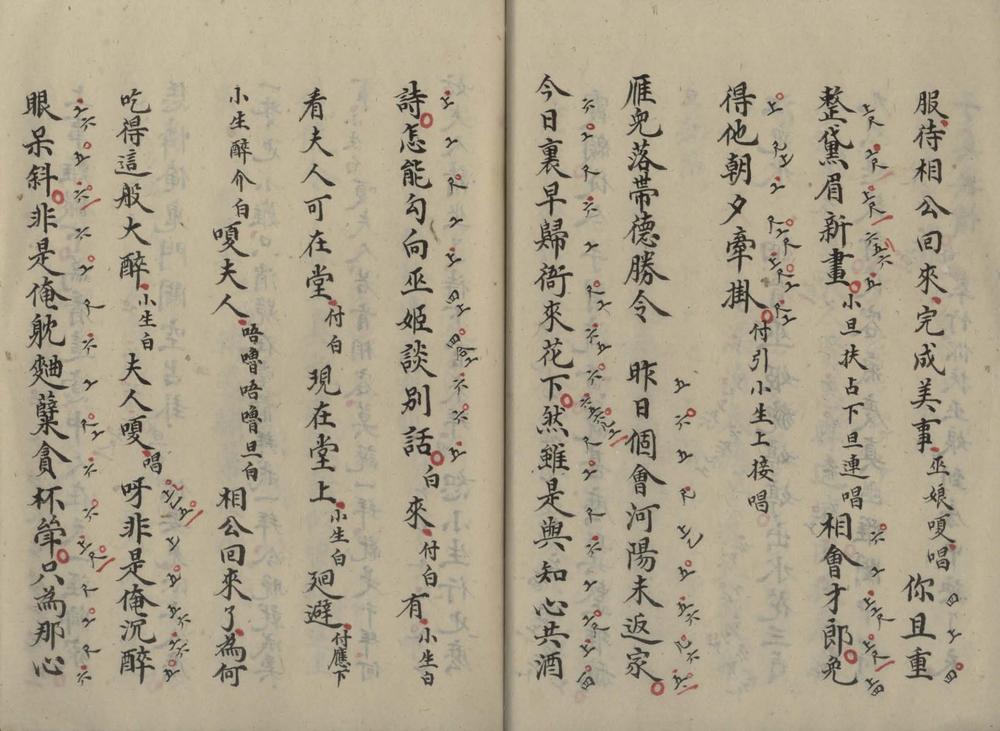 服待相公回來完成美事巫娘嗄唱你且重
整黛眉新畫小旦扶占下旦連唱相會才郎免
得他朝夕牽掛付引小生上接唱
雁兒落帶德勝令 昨日個會河陽未返家
今日裏早歸衙來花下然雖是與知心共酒
詩怎能勾向巫姬談別話白來付白有小生白
看夫人可在堂付白現在堂上小生白廻避付應下
小生醉介白嗄夫人唔嚕唔嚕旦白相公回來了為何
吃得這般大醉小生白夫人嗄唱呀非是俺沉醉
眼呆斜非是俺躭麯蘖貪杯斚只為那心